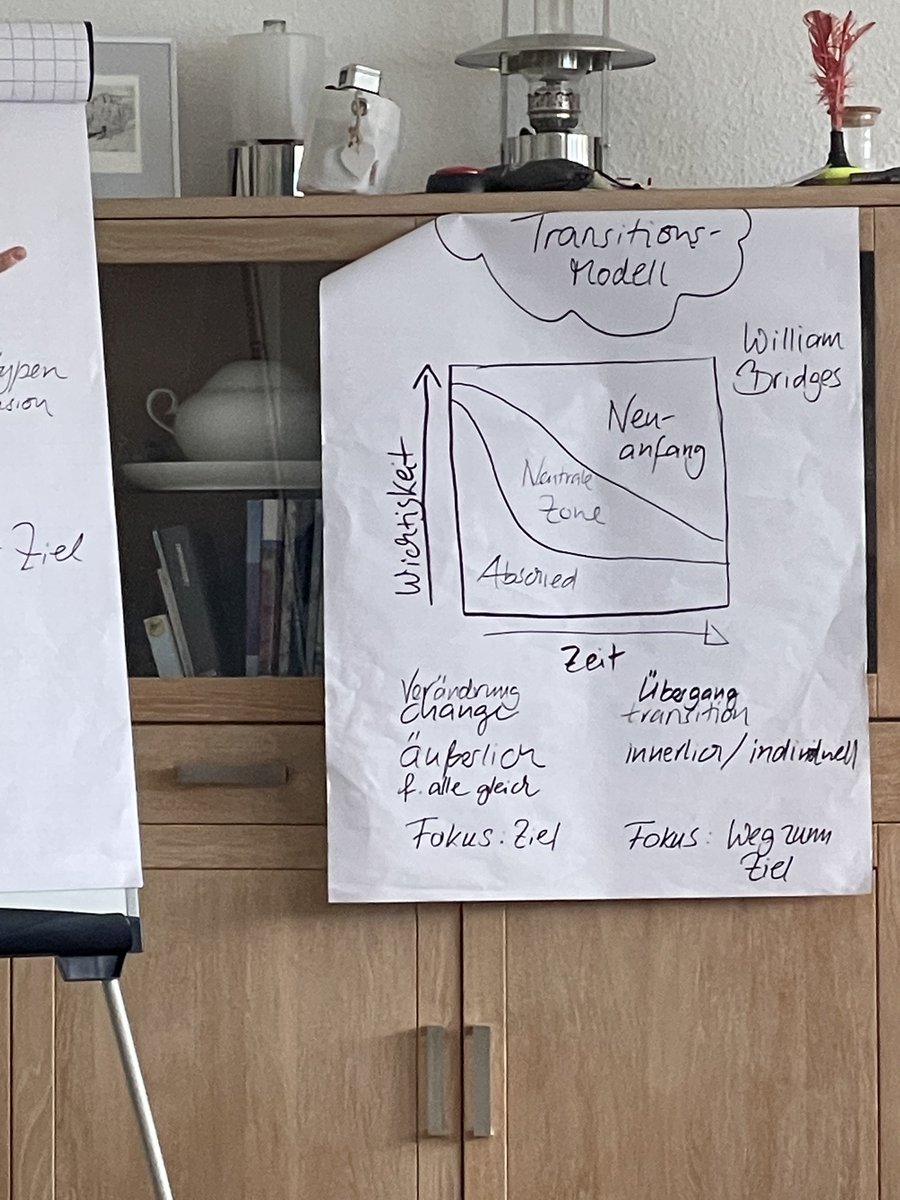 Ziel
Transitions-
Modell
William
Bridges
Wichtigkeit
Neu-
anfang
Neutrale
Zone
Abschied
Zeit
Verändrung
change
äußerlich
f. alle gleich
Fokus: Ziel
Übergang
transition
innerlich / individuell
Fokus: Weg zum
Ziel